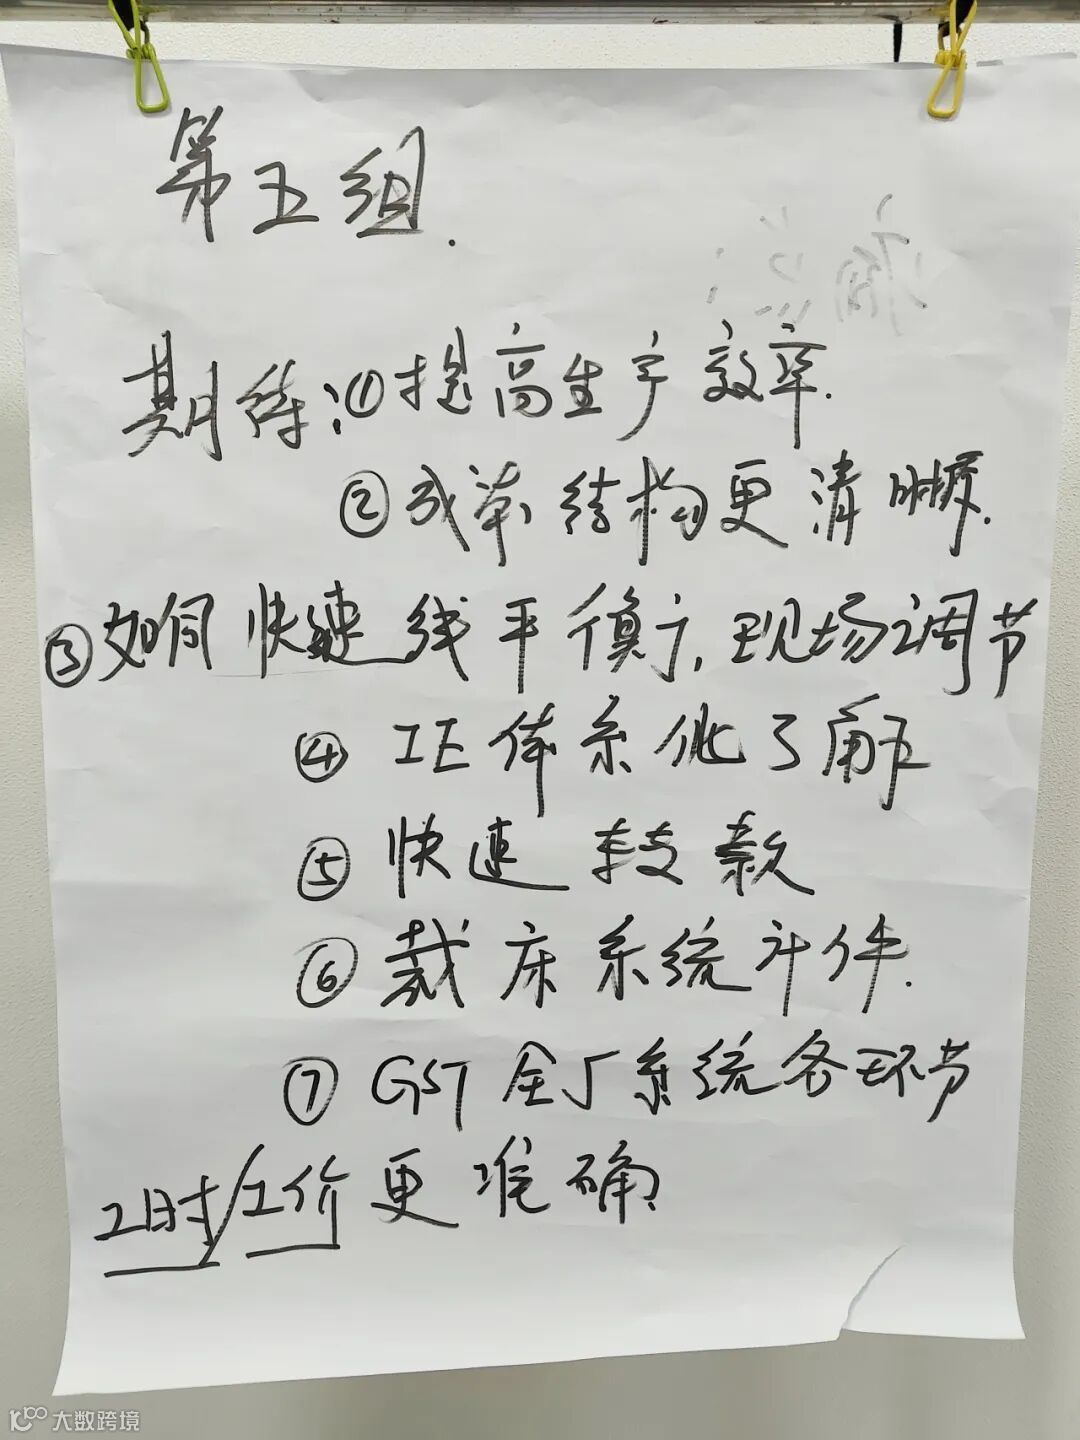 第五组.
期待:①提高生产效率.
②成本结构更清晰.
③如何快速线平衡,现场调节
④IE体系化了解
⑤快速转款
⑥裁床系统计件.
⑦GST全厂系统各环节
工时/工价更准确
大数跨境